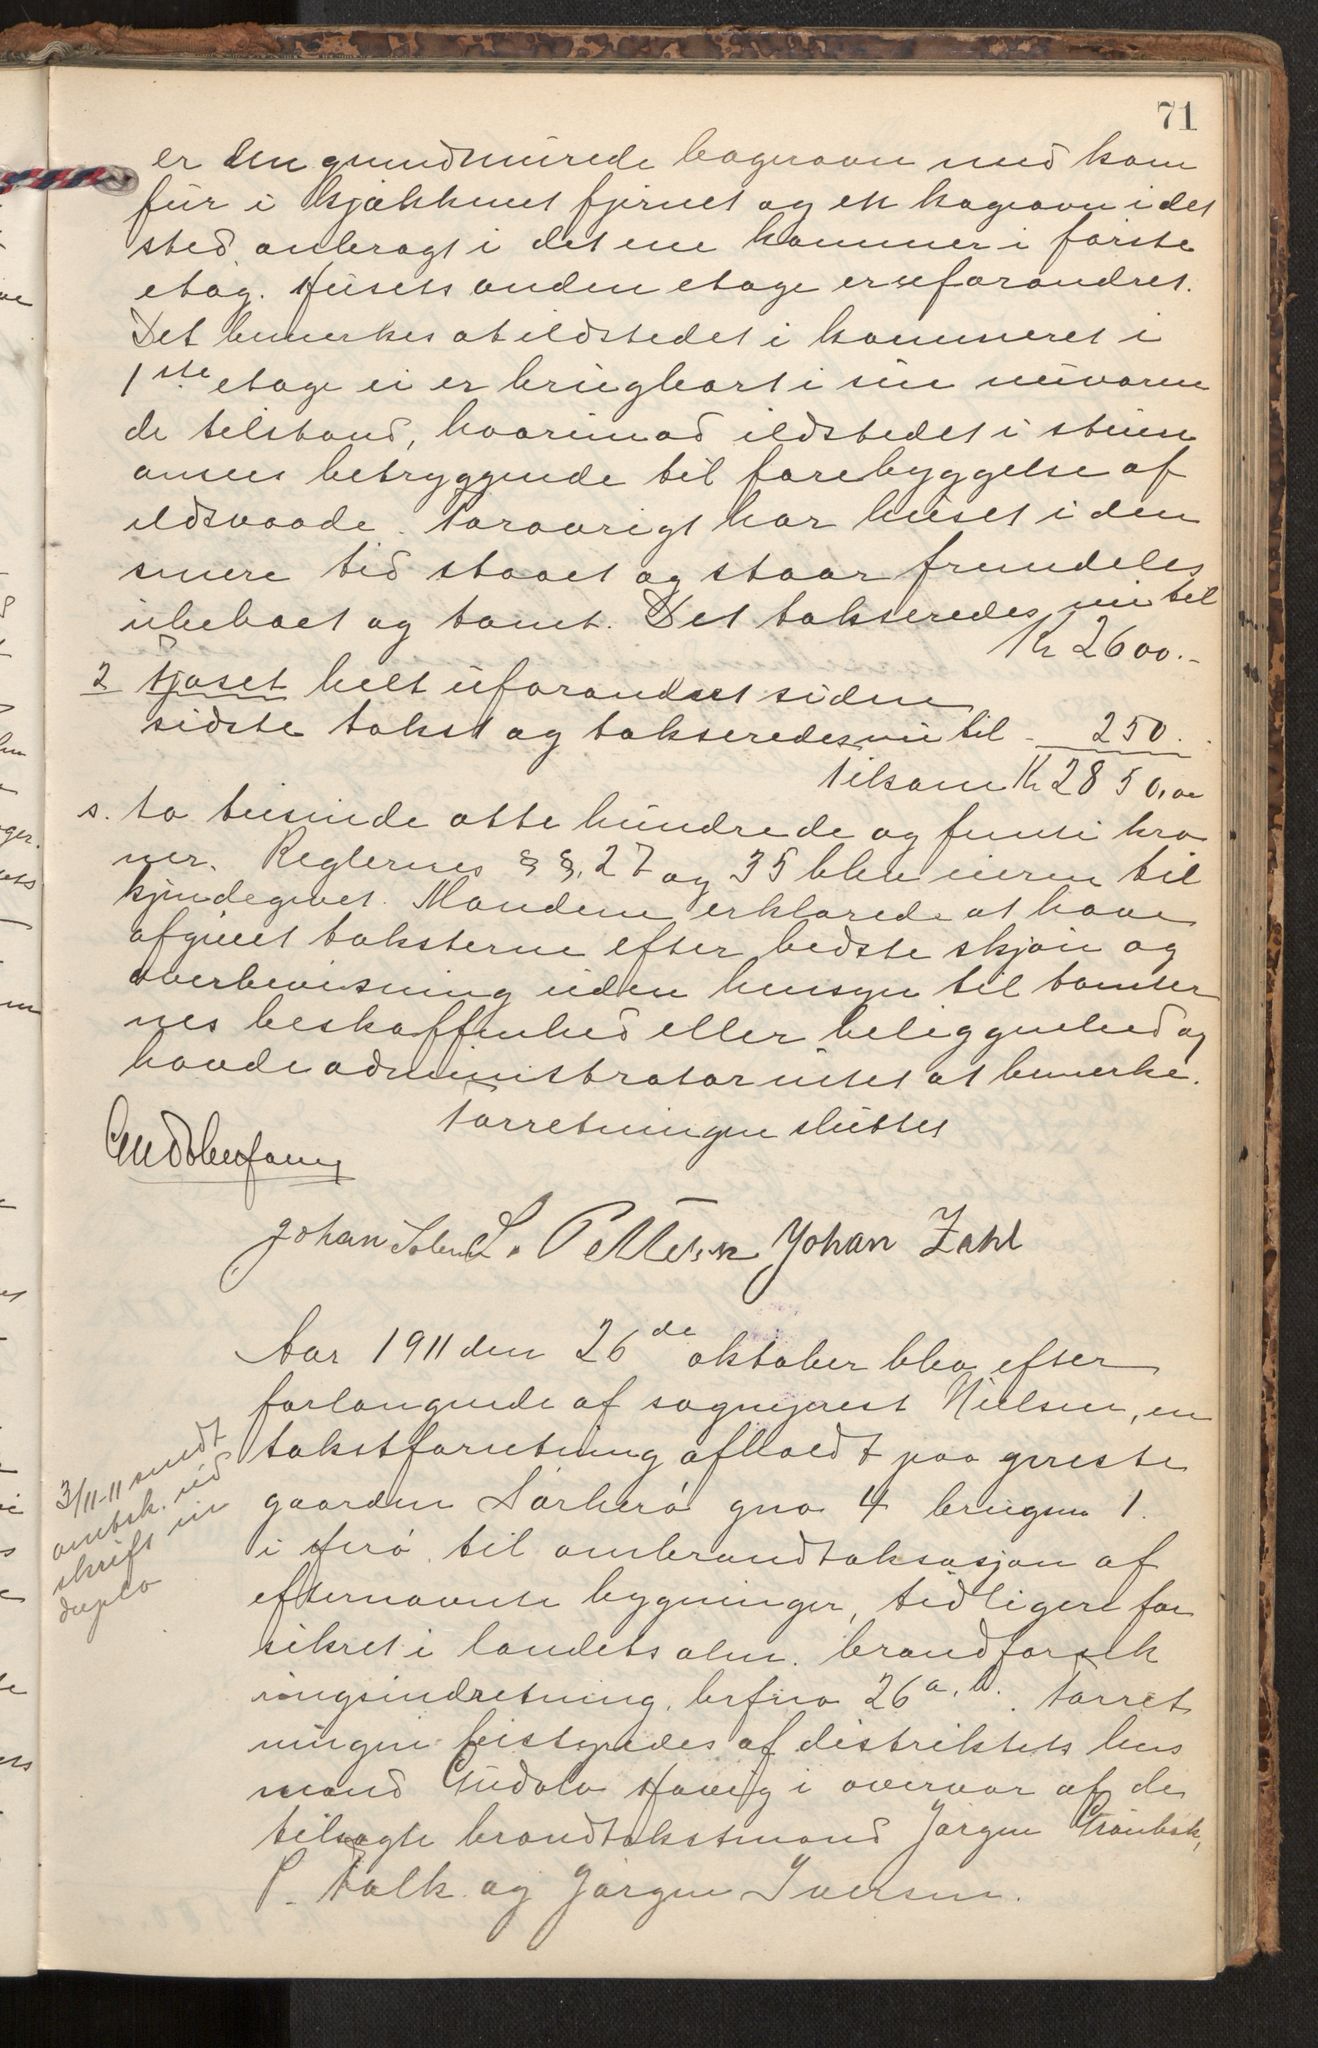 71
er den grundmurede bageovn med kom
fur i kjøkkenet fjernet og en kogeovn i det
sted anbragt i det ene kammer i første
etag. Husets anden etage er uforandret.
Det bemerkes at ildstedet i kammeret i
1ste etage ei er brugbart i sin nuværen
de tilstand, hvorimod ildstedet i stuen
ansees betryggende til forebyggelse af
ildsvaade. Forøvrigt har huset i den
senere tid staaet og staar fremdeles
ubeboet og tomt. Det takseredes nu til
Kr 2600.-
2 Fjøset helt uforandret siden
sidste takst og takseredes nu til - 250.
Tilsam Kr 2850,00
s. to tusinde otte hundrede og femti kro
ner. Reglernes §§. 27 og 35 blev eieren til
kjendegivet. Mændene erklærede at have
afgivet taksterne efter bedste skjøn og
overbevisning uden hensyn til tomter
nes beskaffenhed eller beliggenhed og
havde administrator intet at bemerke.
Forretningen sluttet
Johan L. Pettersen Johan Zahl
Aar 1911 den 26de oktober blev efter
forlangende af sogneprest Nielsen, en
takstforretning afholdt paa preste
gaarden Sørherø gno 4 brugsn 1.
i Herø til ombrandtaksasjon af
efternævnte bygninger, tidligere for
sikret i landets alm. brandforsik
ringsindretning brfno 26 a, b. Forret
ningen bestyredes af distriktets lens
mand Gudolv Havig i overvær af de
tilsagte brandtakstmænd Jørgen Grønbæk,
P. Falk og Jørgen Iversen.
3/11-11 sendt
amtsk. ud
skrift in
duplo